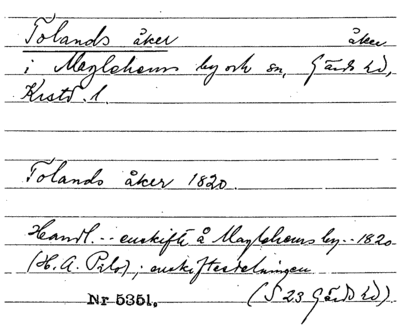 Tolands åker åker
i Maglehems by och sn, Gärds hd,
Krstd. l.
Tolands åker 1820.
Handl. -- enskifte å Maglehems by -- 1820
(H. A. Prlo); enskiftesdelningen
Nr 5351. (S 23 Gärds hd)